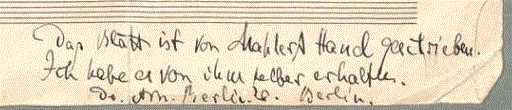 Das Blatt ist von Mahlers Hand geschrieben.
Ich habe es von ihm selber erhalten.
Dr. Arn. Berliner. Berlin.